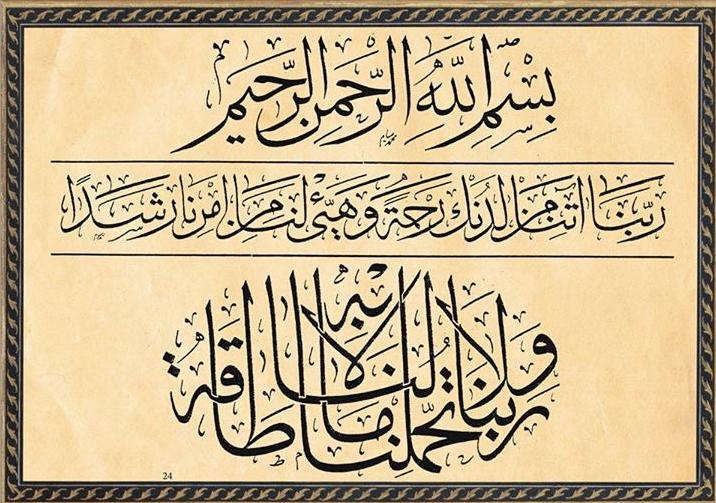 بِسْمِ اللّٰهِ الرَّحْمٰنِ الرَّحِيمِ
رَبَّنَا اٰتِنَا مِنْ لَدُنْكَ رَحْمَةً وَهَيِّئْ لَنَا مِنْ اَمْرِنَا رَشَدًا
رَبَّنَا وَلَا تُحَمِّلْنَا مَا لَا طَاقَةَ لَنَا بِهِ
24